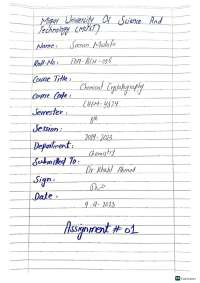 Mirpur University Of Science And
Technology (MUST)
Name:
Roll-No: FA19-BCH-
Course Title:
Chemical Crystallography
Course Code:
CHEM-4374
Semester:
8th
Session:
2019-2023
Department:
Chemistry
Submitted To:
Dr Khalil Ahmed
Sign:
Date:
9-12-2023
Assignment # 01